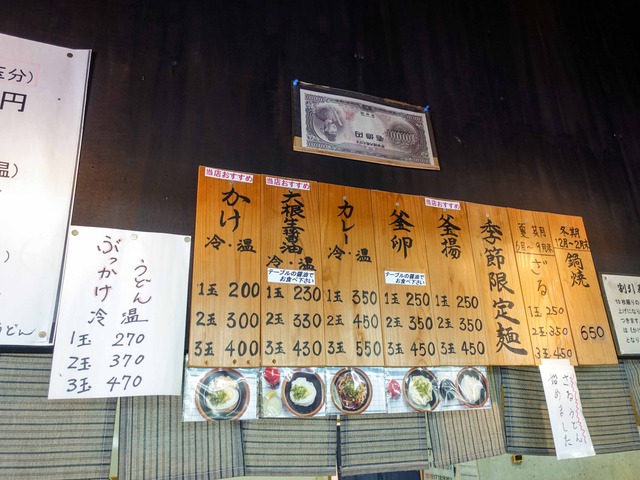 玉分)
円
温)
うどん
ぶっかけ
うどん
冷 温
1玉 270
2玉 370
3玉 470
10000
当店おすすめ
かけ
冷・温
1玉 200
2玉 300
3玉 400
当店おすすめ
大根生醤油
冷・温
テーブルの醤油で
お食べ下さい
1玉 230
2玉 330
3玉 430
カレー
冷・温
1玉 350
2玉 450
3玉 550
釜卵
テーブルの醤油で
お食べ下さい
1玉 250
2玉 350
3玉 450
当店おすすめ
釜揚
1玉 250
2玉 350
3玉 450
季節限定麺
夏期
6月〜9月末
ざる
1玉 250
2玉 350
3玉 450
冬期
12月〜2月末
鍋焼
650
ざるうどん
始めました
割引